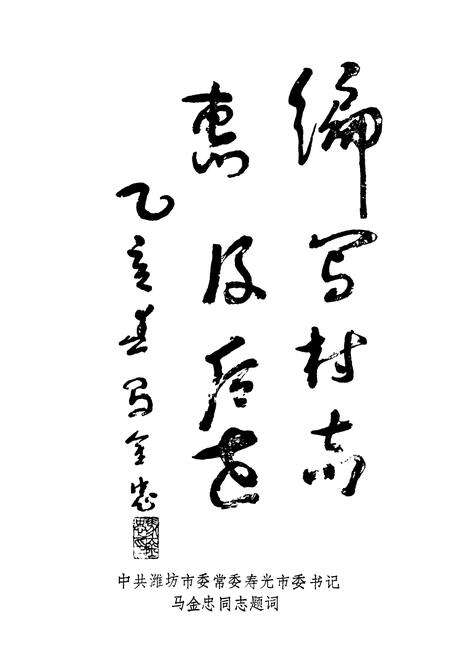 编写村志
惠及后世
乙亥春 马金忠
中共潍坊市委常委寿光市委书记
马金忠同志题词